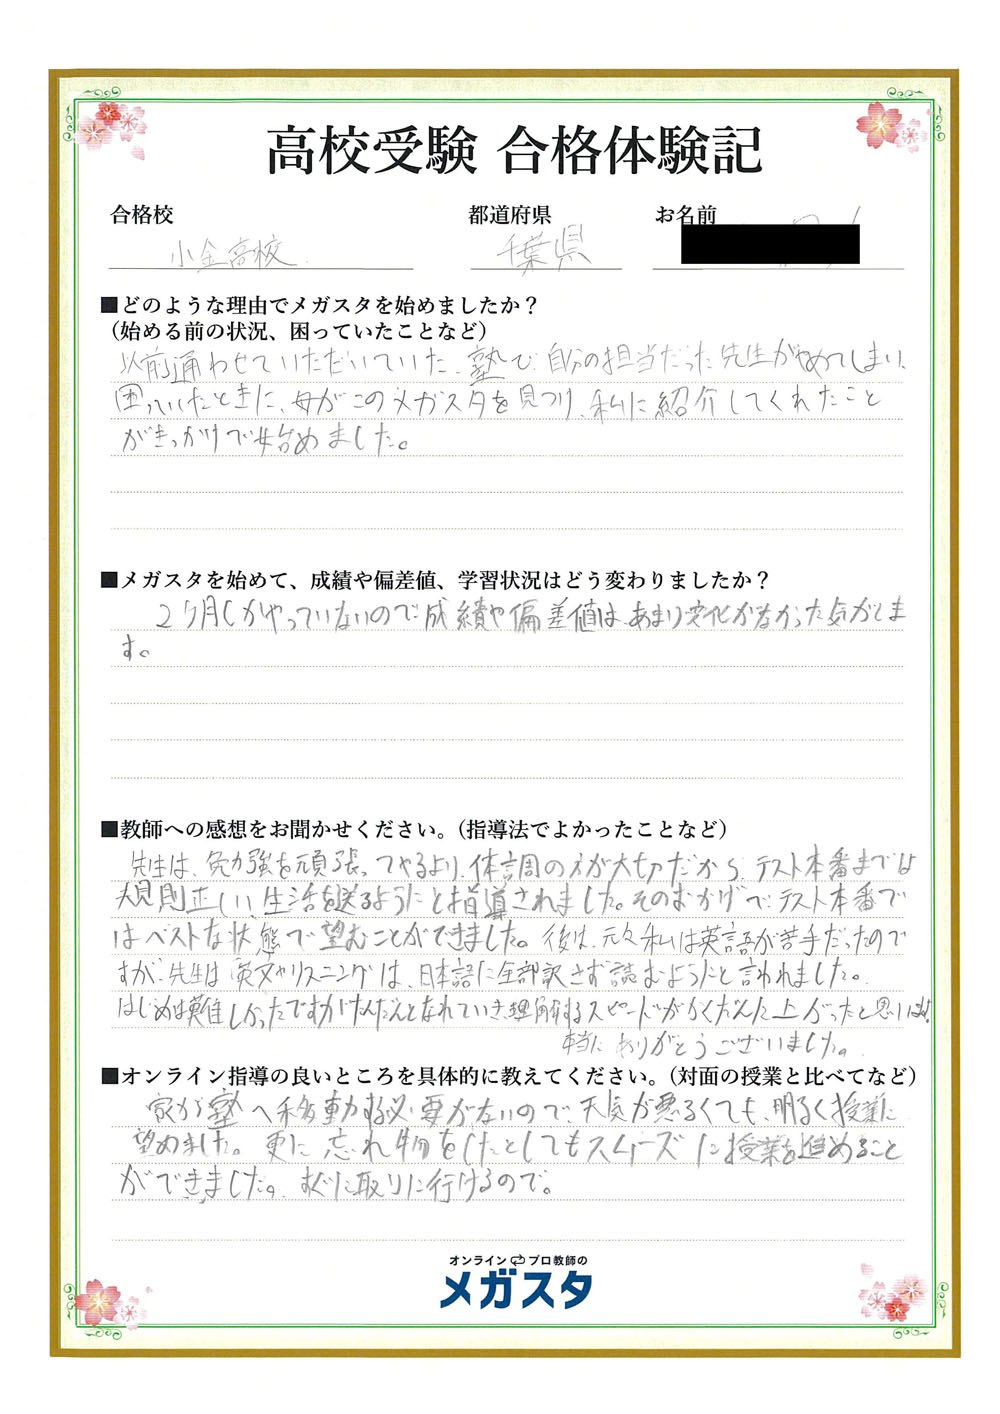 高校受験 合格体験記
合格校 都道府県 お名前
小金高校 千葉県
■どのような理由でメガスタを始めましたか？
（始める前の状況、困っていたことなど）
以前通わせていただいていた、塾で、自分の担当だった先生がやめてしまい、
困っていたときに、母がこのメガスタを見つけ、私に紹介してくれたこと
がきっかけで始めました。
■メガスタを始めて、成績や偏差値、学習状況はどう変わりましたか？
2ヶ月しかやっていないので成績や偏差値は、あまり変化がなかった気がしま
す。
■教師への感想をお聞かせください。（指導法でよかったことなど）
先生は、勉強を頑張ってやるより、体調の方が大切だから、テスト本番までは
規則正しい、生活を送るようにと指導されました。そのおかげで、テスト本番で
はベストな状態で望むことができました。後は、元々私は英語が苦手だったので
すが、先生は英文やリスニングは、日本語に全部訳さず読むようにと言われました。
はじめは難しかったですがだんだんとなれていき、理解するスピードがかくだんに上がったと思います。
本当にありがとうございました。
■オンライン指導の良いところを具体的に教えてください。（対面の授業と比べてなど）
家から塾へ移動する必要がないので、天気が悪るくても、明るく授業に
望めました。更に忘れ物をしたとしてもスムーズに授業を進めること
ができました。すぐに取りに行けるので。
オンライン プロ教師の
メガスタ